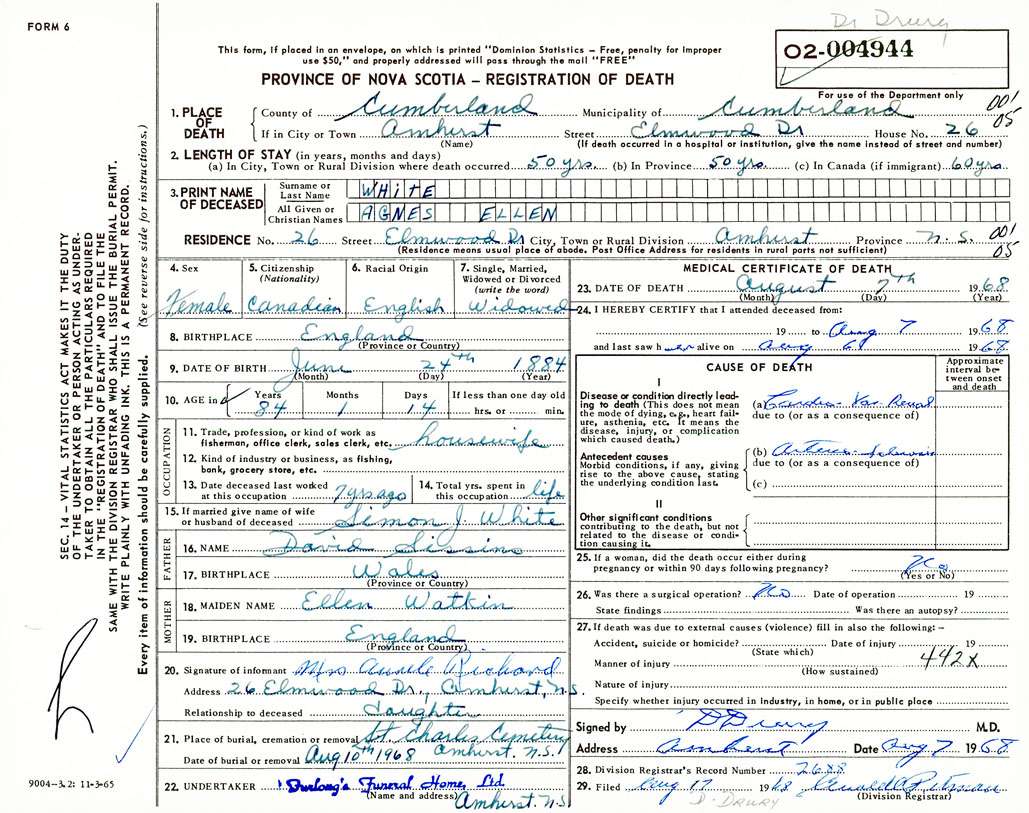 Dr Drury
FORM 6
This form, if placed in an envelope, on which is printed "Dominion Statistics – Free, penalty for improper
use $50," and properly addressed will pass through the mail "FREE"
02-004944
PROVINCE OF NOVA SCOTIA – REGISTRATION OF DEATH
For use of the Department only
001
05
1. PLACE OF DEATH
County of Cumberland Municipality of Cumberland
If in City or Town Amherst Street Elmwood Dr House No. 26
(Name) (If death occurred in a hospital or institution, give the name instead of street and number)
2. LENGTH OF STAY (in years, months and days)
(a) In City, Town or Rural Division where death occurred 50 yrs. (b) In Province 50 yrs. (c) In Canada (if immigrant) 60 yrs.
3. PRINT NAME OF DECEASED
Surname or Last Name WHITE
All Given or Christian Names AGNES ELLEN
RESIDENCE No. 26 Street Elmwood Dr City, Town or Rural Division Amherst Province N. S.
(Residence means usual place of abode. Post Office Address for residents in rural parts not sufficient)
001
05
4. Sex
Female
5. Citizenship
(Nationality)
Canadian
6. Racial Origin
English
7. Single, Married,
Widowed or Divorced
(write the word)
Widowed
8. BIRTHPLACE England
(Province or Country)
9. DATE OF BIRTH June 24th 1884
(Month) (Day) (Year)
10. AGE in Years Months Days If less than one day old
84 1 14 hrs. or min.
OCCUPATION
11. Trade, profession, or kind of work as
fisherman, office clerk, sales clerk, etc. housewife
12. Kind of industry or business, as fishing,
bank, grocery store, etc.
13. Date deceased last worked
at this occupation 7 yrs ago
14. Total yrs. spent in
this occupation life
15. If married give name of wife
or husband of deceased Simon J. White
FATHER
16. NAME David Sissins
17. BIRTHPLACE Wales
(Province or Country)
MOTHER
18. MAIDEN NAME Ellen Watkin
19. BIRTHPLACE England
(Province or Country)
20. Signature of informant Mrs Aurele Richard
Address 26 Elmwood Dr., Amherst, N.S.
Relationship to deceased daughter
21. Place of burial, cremation or removal St Charles Cemetery
Amherst. N.S.
Date of burial or removal Aug 10th 1968
22. UNDERTAKER Furlong's Funeral Home, Ltd
(Name and address) Amherst. N.S
MEDICAL CERTIFICATE OF DEATH
23. DATE OF DEATH August 7th 1968
(Month) (Day) (Year)
24. I HEREBY CERTIFY that I attended deceased from:
19 to Aug 7 1968
and last saw her alive on Aug 6 1968
CAUSE OF DEATH
Approximate interval between onset and death
I
Disease or condition directly leading
to death (This does not mean
the mode of dying, e.g., heart failure,
asthenia, etc. It means the
disease, injury, or complication
which caused death.)
(a) Cardio Vas Renal
due to (or as a consequence of)
Antecedent causes
Morbid conditions, if any, giving
rise to the above cause, stating
the underlying condition last.
(b)
due to (or as a consequence of)
(c)
II
Other significant conditions
contributing to the death, but not
related to the disease or condition
causing it.
25. If a woman, did the death occur either during
pregnancy or within 90 days following pregnancy? No
(Yes or No)
26. Was there a surgical operation? No Date of operation 19
State findings Was there an autopsy?
27. If death was due to external causes (violence) fill in also the following: –
Accident, suicide or homicide? Date of injury 19
(State which)
442X
Manner of injury
(How sustained)
Nature of injury
Specify whether injury occurred in industry, in home, or in public place
Signed by D Drury M.D.
Address Amherst Date Aug 7 1968
28. Division Registrar's Record Number 2688
29. Filed Aug 17 1968
(Division Registrar)
D. DRURY
SEC. 14 – VITAL STATISTICS ACT MAKES IT THE DUTY
OF THE UNDERTAKER OR PERSON ACTING AS UNDERTAKER
TO OBTAIN ALL THE PARTICULARS REQUIRED
IN THE "REGISTRATION OF DEATH" AND TO FILE THE
SAME WITH THE DIVISION REGISTRAR WHO SHALL ISSUE THE BURIAL PERMIT.
WRITE PLAINLY WITH UNFADING INK. THIS IS A PERMANENT RECORD.
Every item of information should be carefully supplied. (See reverse side for instructions.)
9004–3.2: 11-3-65